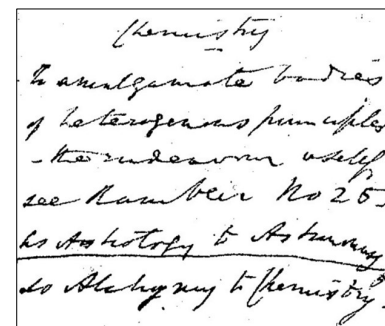 Chemistry
To amalgamate bodies
of heterogenous principles
the endeavour useful
see Rambler No 25
As Astrology to Astronomy
so Alchymy to Chemistry